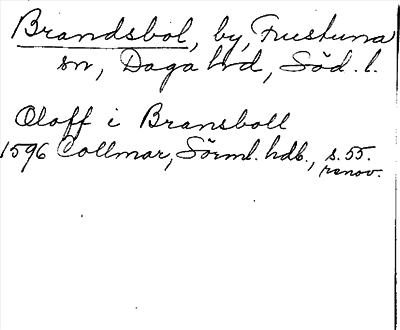 Brandsbol, by, Frustuna
sn, Daga hd, Söd. l.
Oloff i Bransboll
1596 Collmar, Sörml. hdb., s. 55.
renov.